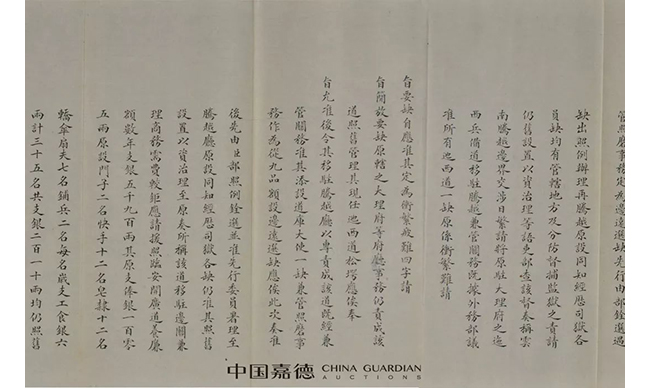 管照磨事務定為邊遠選缺先行由部銓選過
缺出照例辦理再騰越原設同知經歷司獄各
員缺均有管轄地方及分防督捕監獄之責請
仍舊設置以資治理等語吏部查該督奏稱雲
南騰越邊界交涉日繁請將原駐大理府之迤
西兵備道移駐騰越兼管關務既據外務部議
准所有迤西道一缺原係衝繁難請
旨要缺自應准其定為衝繁疲難四字請
旨簡放要缺原轄之大理府等府廳事務仍責成該
道照舊管理其現任迤西道松堮應俟奉
旨允准後令其移駐騰越廳以專責成該道既經兼
管關務准其添設道庫大使一缺兼管照磨事
務作為從九品額設邊遠選缺應俟此次奏准
後先由臣部照例銓選並准先行委員署理至
騰越廳原設同知經歷司獄各缺仍准其照舊
設置以資治理至原奏所稱該道移駐邊關兼
理商務需費較鉅應請援照臨安開廣道養廉
額數年支銀五千九百兩其原支俸銀一百零
五兩原設門子二名快手十二名皂隸十二名
轎傘扇夫七名鋪兵二名每名歲支工食銀六
兩計三十五名共支銀二百一十兩均仍照舊
中国嘉德 CHINA GUARDIAN AUCTIONS